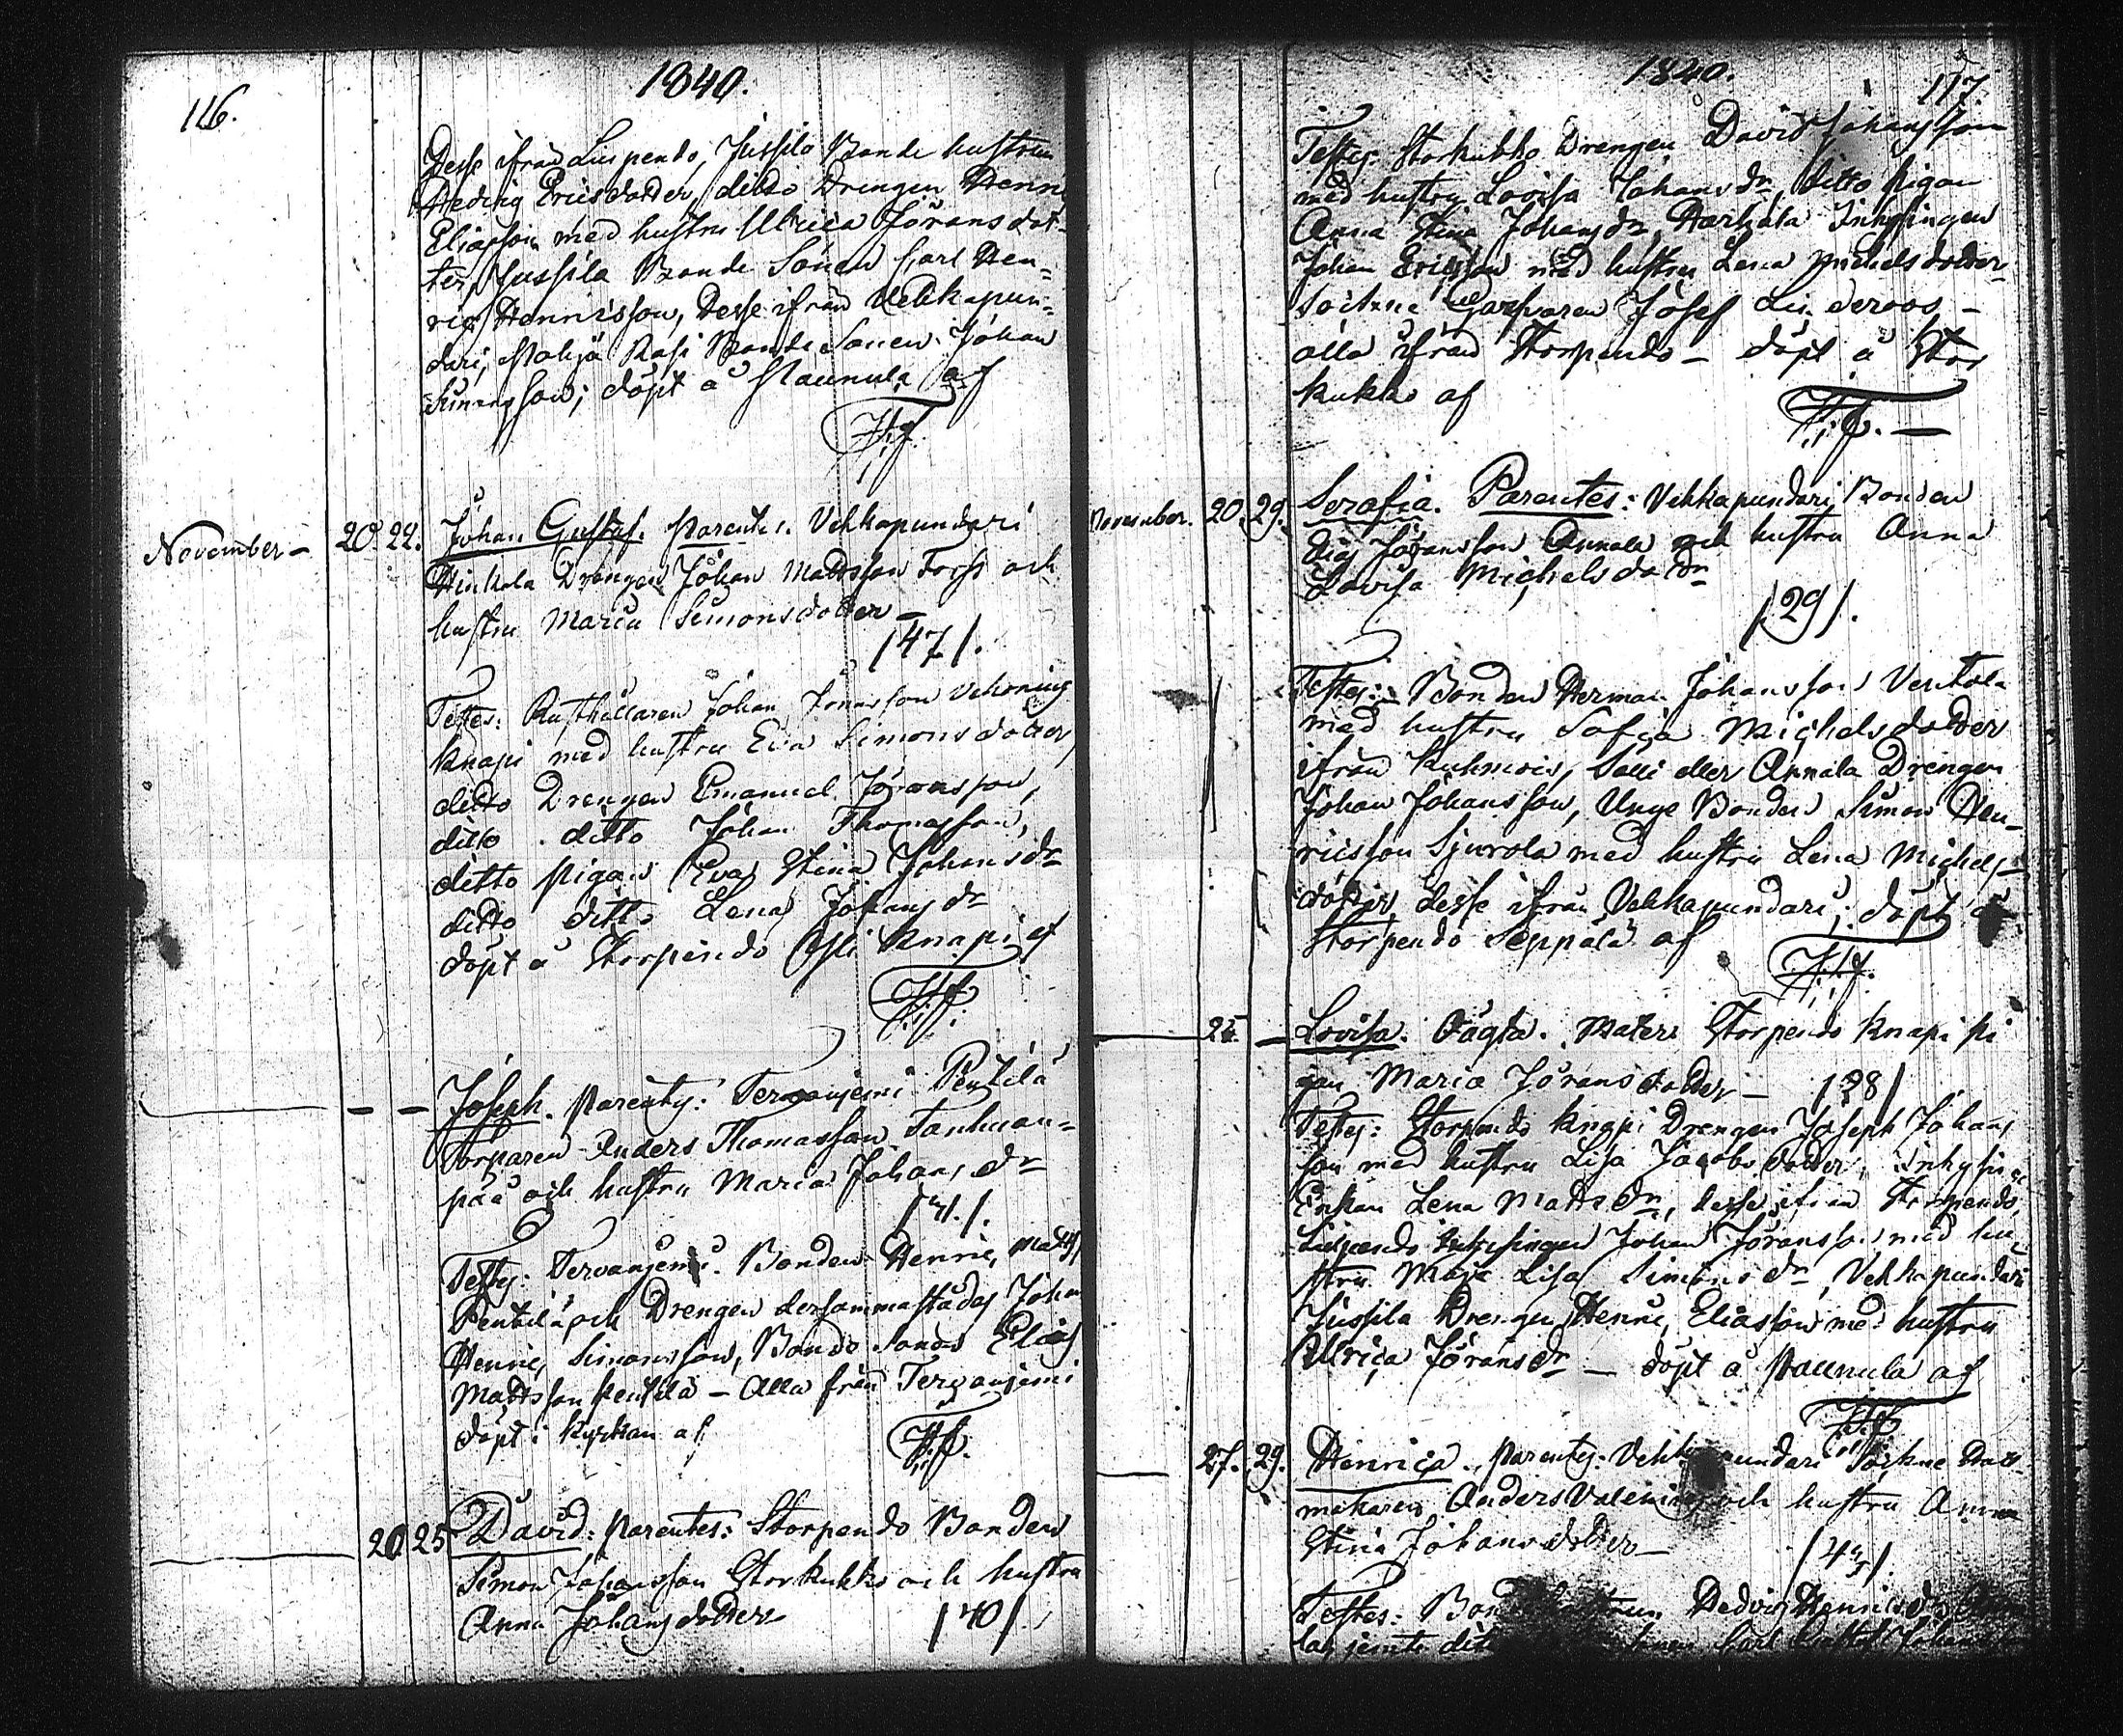 116.
1840.
Desse ifrån Liuspendo, Jussila Bonde hustrun
Hedvig Ericsdotter, ditto Drengen Henric
Eliasson med hustru Ulrica Göransdot-
ter, Jussila Bonde Sonen Carl Hen=
ric Henricsson, Desse ifrån Vehkapun=
dari, Rasi Bonde Sonen Johan
Simonsson; döpt å Maunula af
November –
20. 22.
Johan Gustaf. Parentes. Vehkapundari
Hinkala Drengen Johan Mattsson Forss och
hustru Maria Simonsdotter –
/47/.
Testes: Rusthållaren Johan Jönasson
Knapi med hustru Eva Simonsdotter,
ditto Drengen Emanuel Göransson,
ditto . ditto Johan Thomasson,
ditto pigan Eva Stina Johansdr
ditto ditto Lena Johansdr
döpt å Storpendo Knapi af
– –
Joseph. Parentes: Tervaniemi Pentilä
Torparen Anders Thomasson Tanhuan=
pää och hustru Maria Johansdr
Testes: Tervaniemi Bonden Henric Matts
Pentilä och Drengen dersammastädes Johan
Henric Simonsson, Bonde Sonen Elias
Mattsson Pentilä – Alla från Tervaniemi
döpt i Kyrkan af
20 25
David: Parentes: Storpendo Bonden
Simon Johansson Storkukko och hustru
Anna Johansdotter
/40/
1840.
117.
Testes: Storkukko Drengen David Johansson
med hustru Lovisa Johansdr, ditto pigan
Anna Stina Johansdr, Harhala Inhysingen
Johan Ericsson med hustru Lena Michelsdotter
Sockne Garfvaren Josef Linderoos –
alla ifrån Storpendo – döpt å Stor
kukko af
November. 20. 29.
Serafia. Parentes: Vehkapundari Bonden
Elias Göransson Annala och hustru Anna
Lovisa Michelsdotr
/29/.
Testes: Bonden Herman Johansson Ventola
med hustru Sofia Michelsdotter
ifrån Kuhmois, Salli eller Annala Drengen
Johan Johansson, Unge Bonden Simon Hen-
ricsson Sjurola med hustru Lena Michels
dotter, desse ifrån Vehkapundari; döpt å
Storpendo Seppälä af
Lovisa. Oägta. Mater: Storpendo Knapi pi
gan Maria Göransdotter – /28/
Testes: Storpendo Knapi Drengen Joseph Johans
son med hustru Lisa Jacobsdotter, Inhysings
Enkan Lena Mattsdr, desse ifrån Storpendo,
Liuspendo Inhysingen Johan Göransson med hu=
stru Maja Lisa Simonsdr, Vehkapundari
Jussila Drengen Henric Eliasson med hustru
Ulrica Göransdr – döpt å Maunula af
27. 29.
Henrica. Parentes: Sockne Hatt
makaren Anders Valenius och hustru Anna
Stina Johansdotter –
Testes: Hedvig Henricsdr